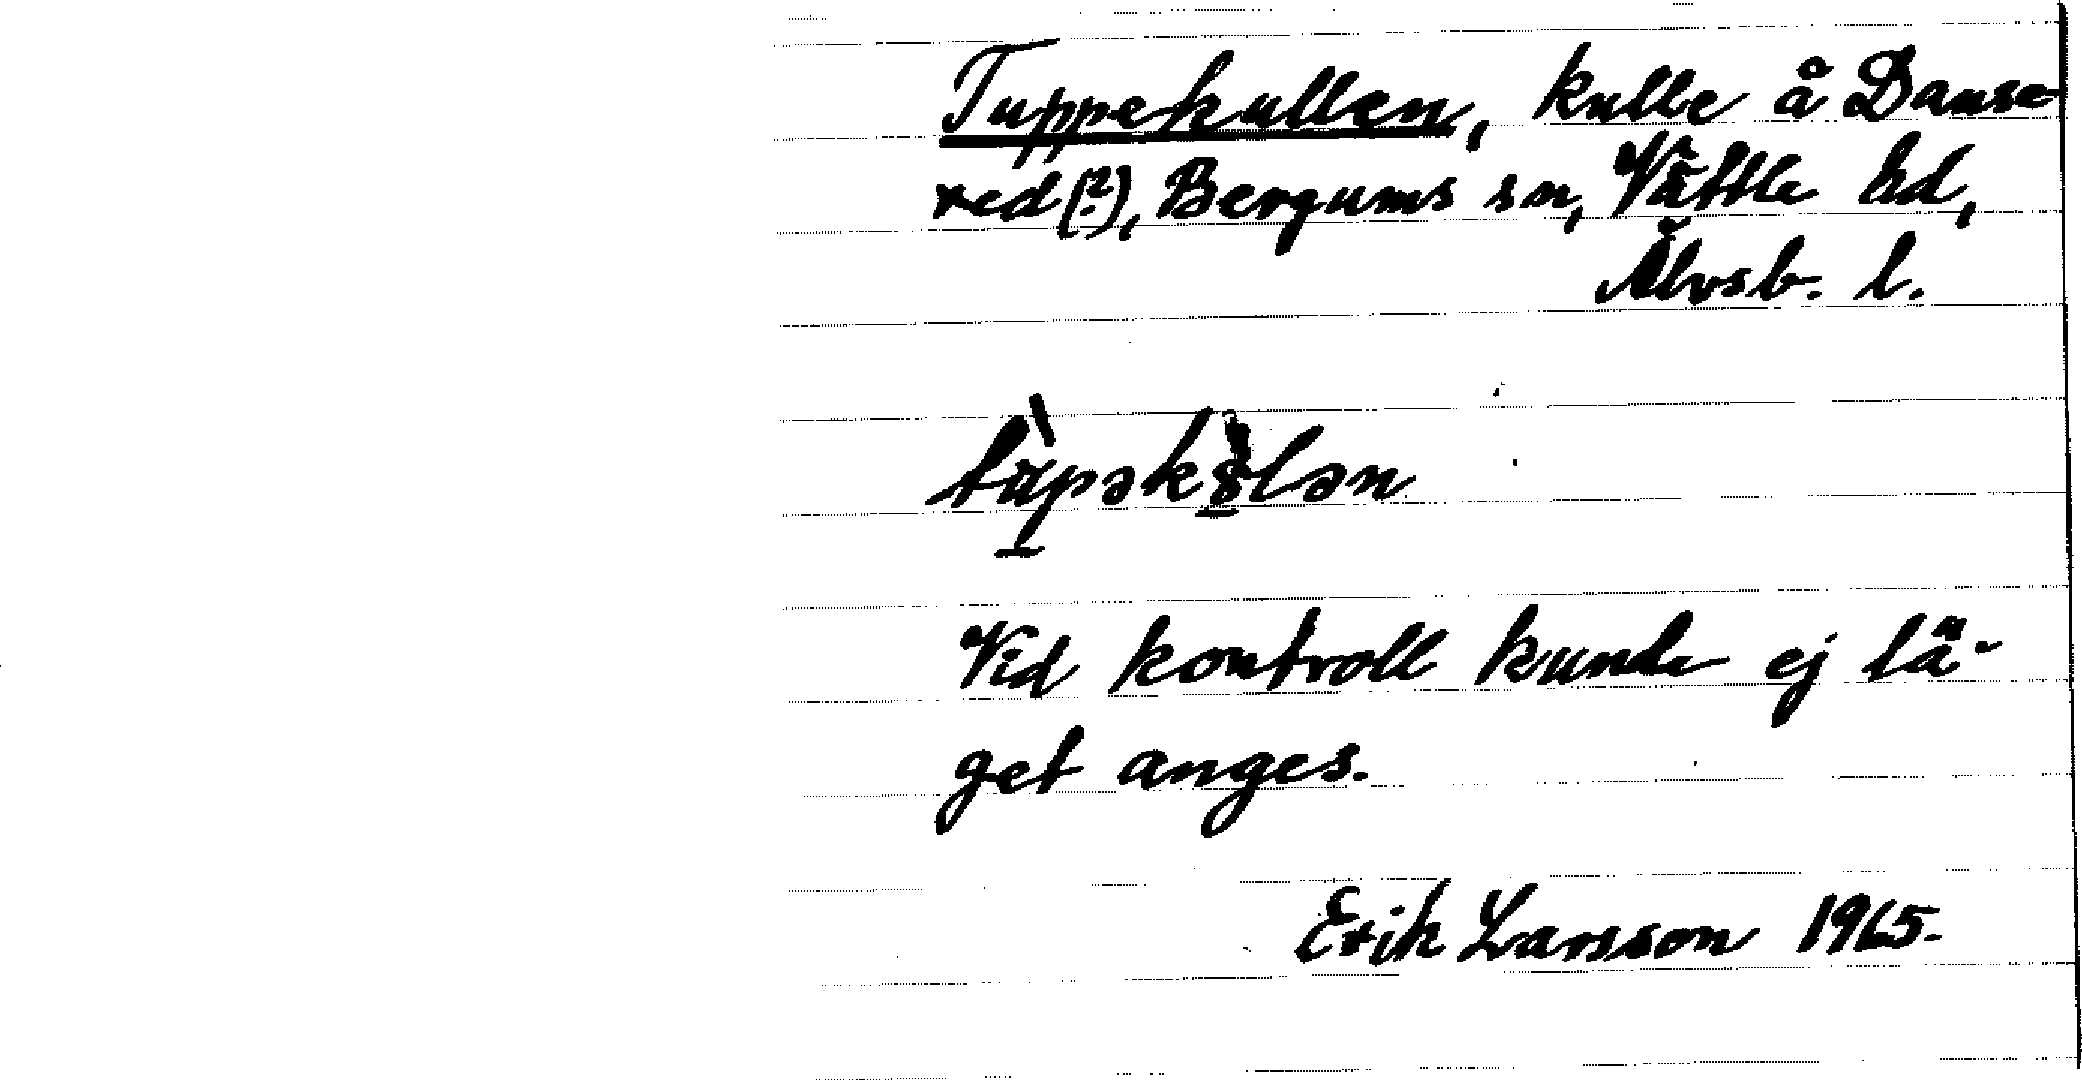 Tuppekullen, kulle å Danse-
red(?), Bergums sn, Vättle hd,
Älvsb. l.
tùpəkə̀lən
Vid kontroll kunde ej lä-
get anges.
Erik Larsson 1965.